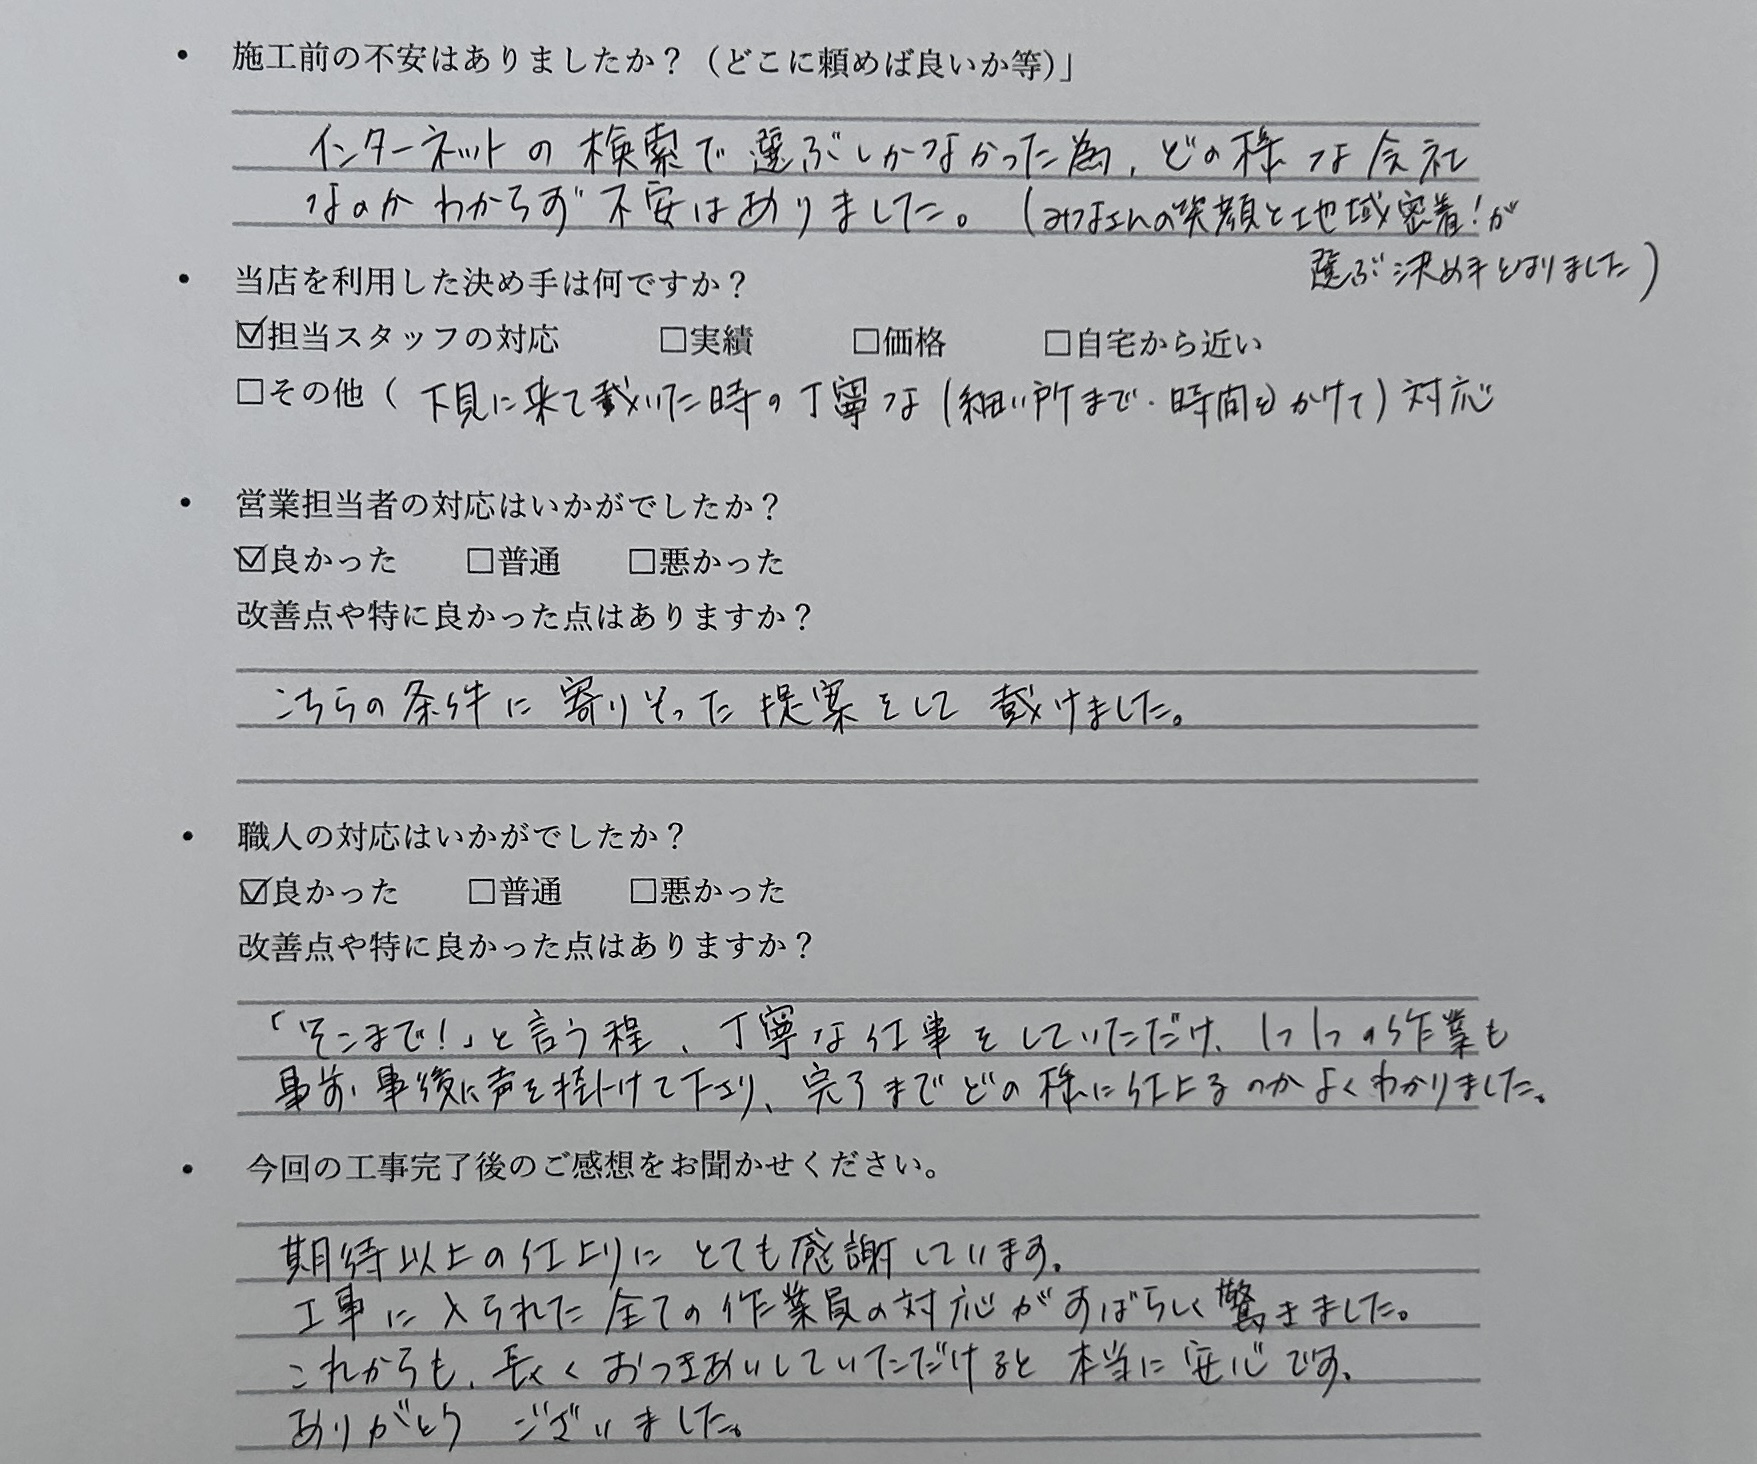 ・ 施工前の不安はありましたか？（どこに頼めば良いか等）」
インターネットの検索で選ぶしかなかった為、どの様な会社
なのかわからず不安はありました。（みなさんの笑顔と地域密着！が
選ぶ決め手となりました）
・ 当店を利用した決め手は何ですか？
☑担当スタッフの対応 □実績 □価格 □自宅から近い
□その他（ 下見に来て戴いた時の丁寧な（細い所まで・時間をかけて）対応
・ 営業担当者の対応はいかがでしたか？
☑良かった □普通 □悪かった
改善点や特に良かった点はありますか？
こちらの条件に寄りそった提案をして戴けました。
・ 職人の対応はいかがでしたか？
☑良かった □普通 □悪かった
改善点や特に良かった点はありますか？
「そこまで！」と言う程、丁寧な仕事をしていただけ、1つ1つの作業も
事前・事後に声を掛けて下さり、完了までどの様に仕上るのかよくわかりました。
・ 今回の工事完了後のご感想をお聞かせください。
期待以上の仕上りにとても感謝しています。
工事に入られた全ての作業員の対応がすばらしく驚きました。
これからも、長くおつきあいしていただけると本当に安心です。
ありがとうございました。